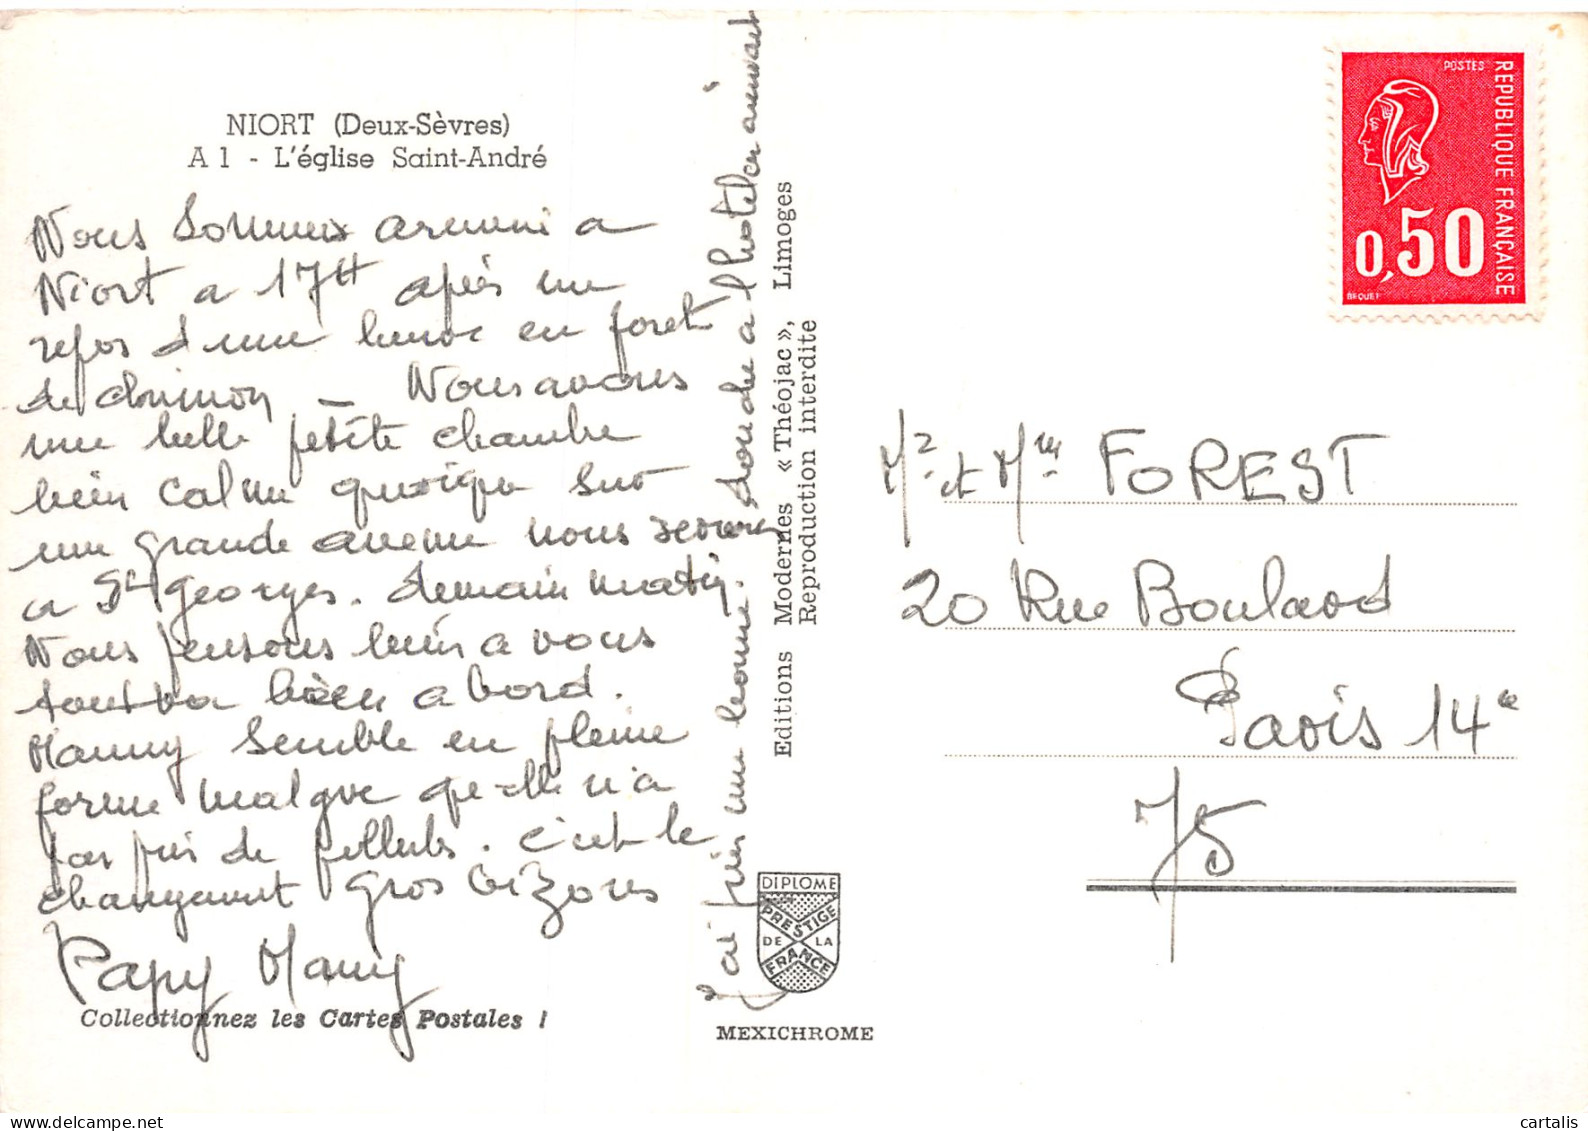 NIORT (Deux-Sèvres)
A 1 - L'église Saint-André
Nous sommes a
Niort a 17H après une
repos d'une heure en foret
de chinon — Nous avons
une belle petite chambre
bien calme quoique sur
une grande avenue nous serons
a St Georges. demain matin.
Nous pensons bien a vous
bien a bord.
Mamy semble en pleine
forme malgre qu'elle n'a
pas pris de pillules. c'est le
changement Gros Bizous
Papy Mamy
Collectionnez les Cartes Postales !
J'ai pris une bonne douche a l'hotel en arrivant
Editions Modernes « Théojac », Limoges
Reproduction interdite
DIPLOME
PRESTIGE
DE LA
FRANCE
MEXICHROME
POSTES
REPUBLIQUE FRANÇAISE
0,50
BEQUET
Mr et Mme FOREST
20 Rue Boulard
Paris 14e
75
cartalis